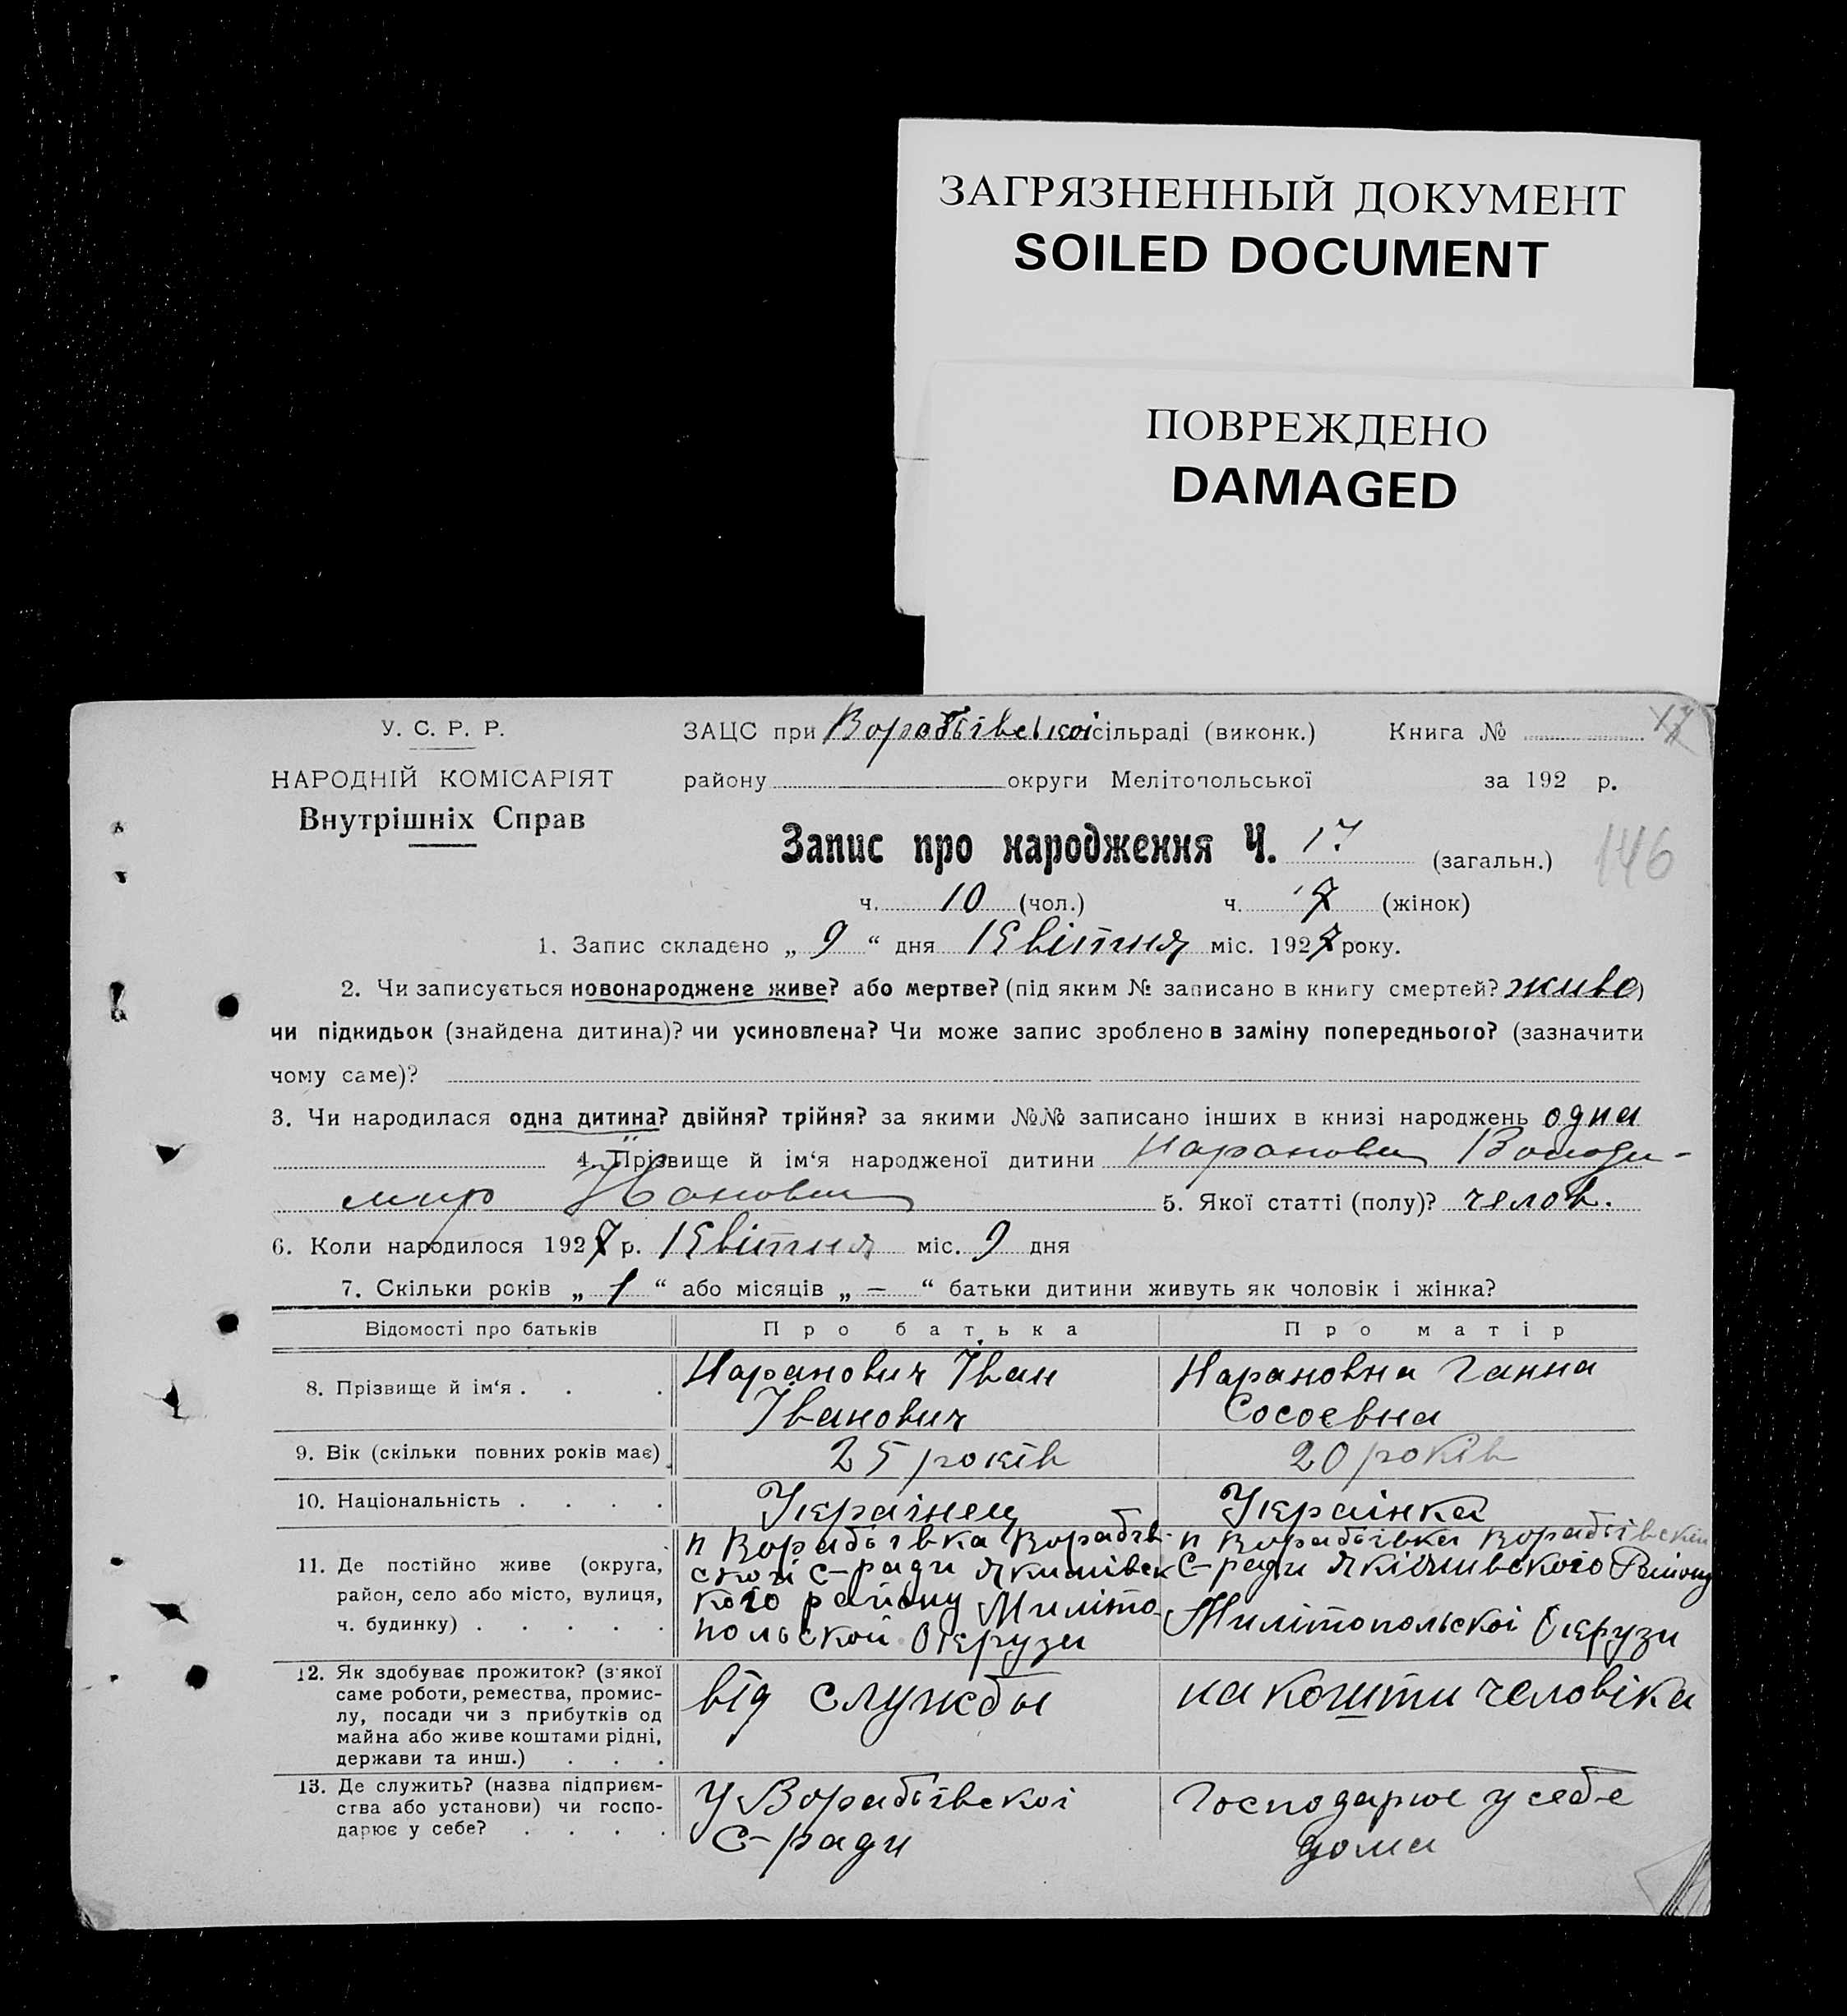 ЗАГРЯЗНЕННЫЙ ДОКУМЕНТ
SOILED DOCUMENT
ПОВРЕЖДЕНО
DAMAGED
У. С. Р. Р. ЗАЦС при Воробьівської сільраді (виконк.) Книга № 17
НАРОДНІЙ КОМІСАРІЯТ району округи Мелітопольської за 192 р.
Внутрішніх Справ
Запис про народження Ч. 17 (загальн.) 146
ч. 10 (чол.) ч. 7 (жінок)
1. Запис складено „ 9 “ дня Квітня міс. 1927 року.
2. Чи записується новонароджене живе? або мертве? (під яким № записано в книгу смертей? живе)
чи підкидьок (знайдена дитина)? чи усиновлена? Чи може запис зроблено в заміну попереднього? (зазначити
чому саме)?
3. Чи народилася одна дитина? двійня? трійня? за якими №№ записано інших в книзі народжень одна
4. Прізвище й ім‘я народженої дитини Наранович Володи-
мир Іванович 5. Якої статті (полу)? челов.
6. Коли народилося 1927 р. Квітня міс. 9 дня
7. Скільки років „ 1 “ або місяців „ — “ батьки дитини живуть як чоловік і жінка?
Відомості про батьків Про батька Про матір
8. Прізвище й ім‘я . . . Наранович Іван Нарановна Ганна
Іванович Сосоєвна
9. Вік (скільки повних років має) 25 років 20 років
10. Національність . . . . Українец Украінка
11. Де постійно живе (округа, район, село або місто, вулиця, ч. будинку) . . . . .
п Ворабьівка Ворабів-
ської С-ради Якимівск
кого району Миліто-
польской Округи
п Ворабьівка Ворабьівской
С-ради Якімивского Району
Милітопольскоі Округи
12. Як здобуває прожиток? (з якої
саме роботи, ремества, промис-
лу, посади чи з прибутків од
майна або живе коштами рідні,
держави та инш.) . . .
від службы
на кошти человіка
13. Де служить? (назва підприєм-
ства або установи) чи госпо-
дарює у себе? . . . .
У Ворабьівскоі
С-ради
Господарює у себе
дома